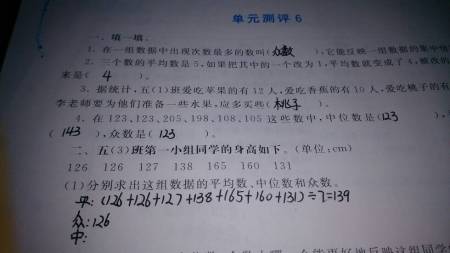 单元测评6
一、填一填。
1. 在一组数据中出现次数最多的数叫(众数),它能反映一组数据的集中情
2. 三个数的平均数是5,如果把其中的一个改为1,平均数就变成了4,被改的
来是( 4 )。
3. 据统计,五(1)班爱吃苹果的有12人,爱吃香蕉的有10人,爱吃桃子的有
李老师要为他们准备一些水果,应多买些(桃子)。
4. 在123、123、205、198、108、105这些数中,中位数是(123),
(143),众数是( 123 )。
二、五(3)班第一小组同学的身高如下。(单位:cm)
126 126 127 138 165 160 131
(1)分别求出这组数据的平均数、中位数和众数。
平:(126+126+127+138+165+160+131)÷7=139
众:126
中: